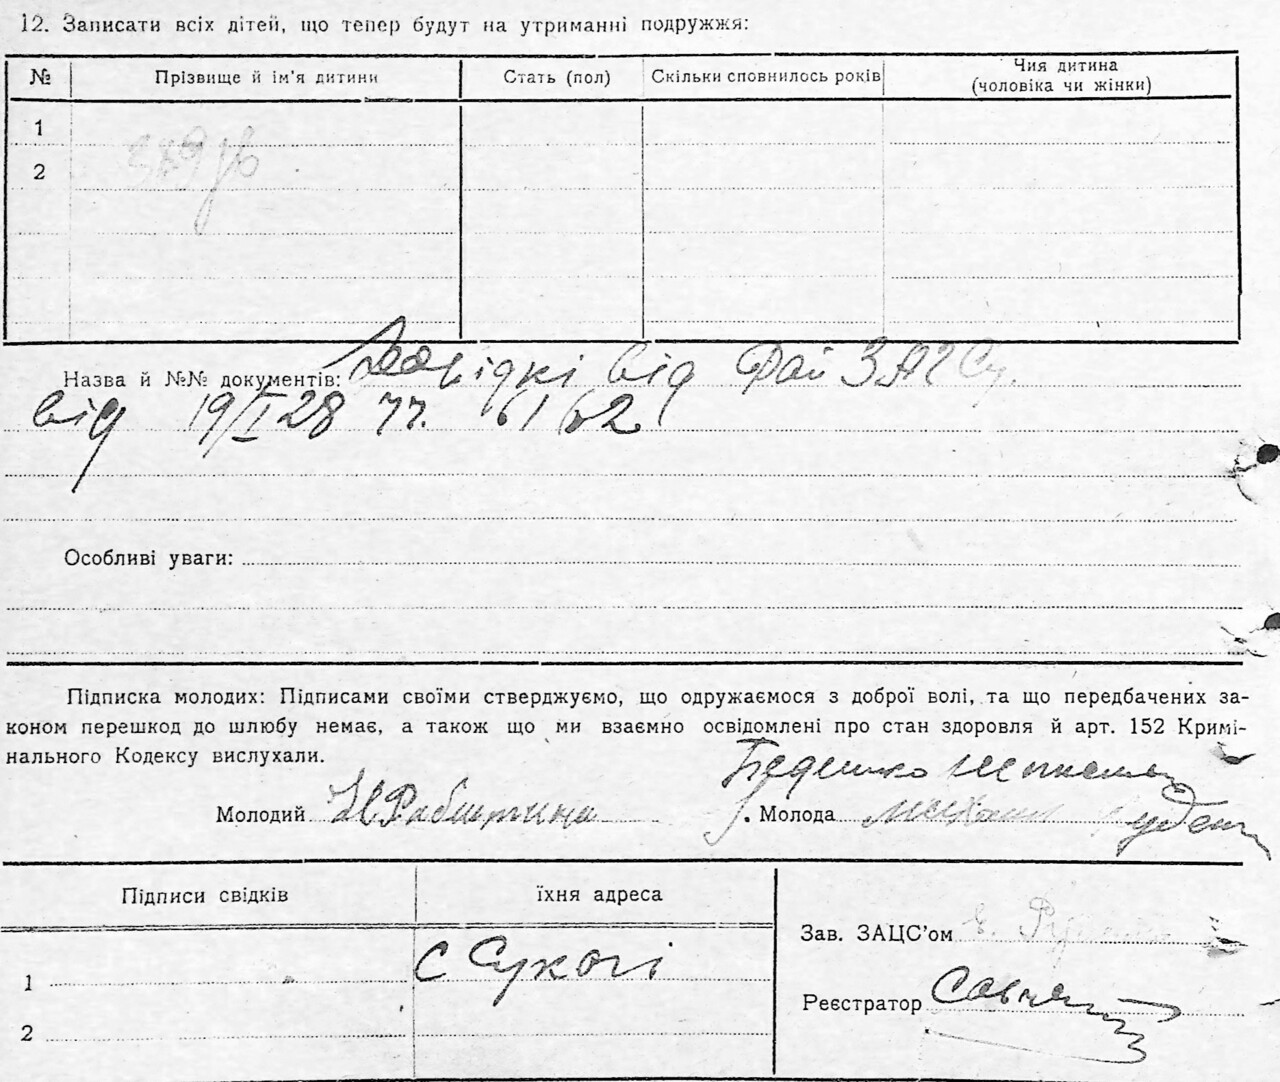 12. Записати всіх дітей, що тепер будут на утриманні подружжя:
№ Прізвище й ім'я дитини Стать (пол) Скільки сповнилось років Чия дитина
(чоловіка чи жінки)
1
2
Назва й №№ документів: Довідкі від Рай ЗАГСу.
від 19/I 28 61 62
Особливі уваги:
Підписка молодих: Підписами своїми стверджуємо, що одружаємося з доброї волі, та що передбачених за-
коном перешкод до шлюбу немає, а також що ми взаємно освідомлені про стан здоровля й арт. 152 Кримі-
нального Кодексу вислухали.
Молодий Молода
Підписи свідків їхня адреса
Зав. ЗАЦС'ом
1 С
Реєстратор
2